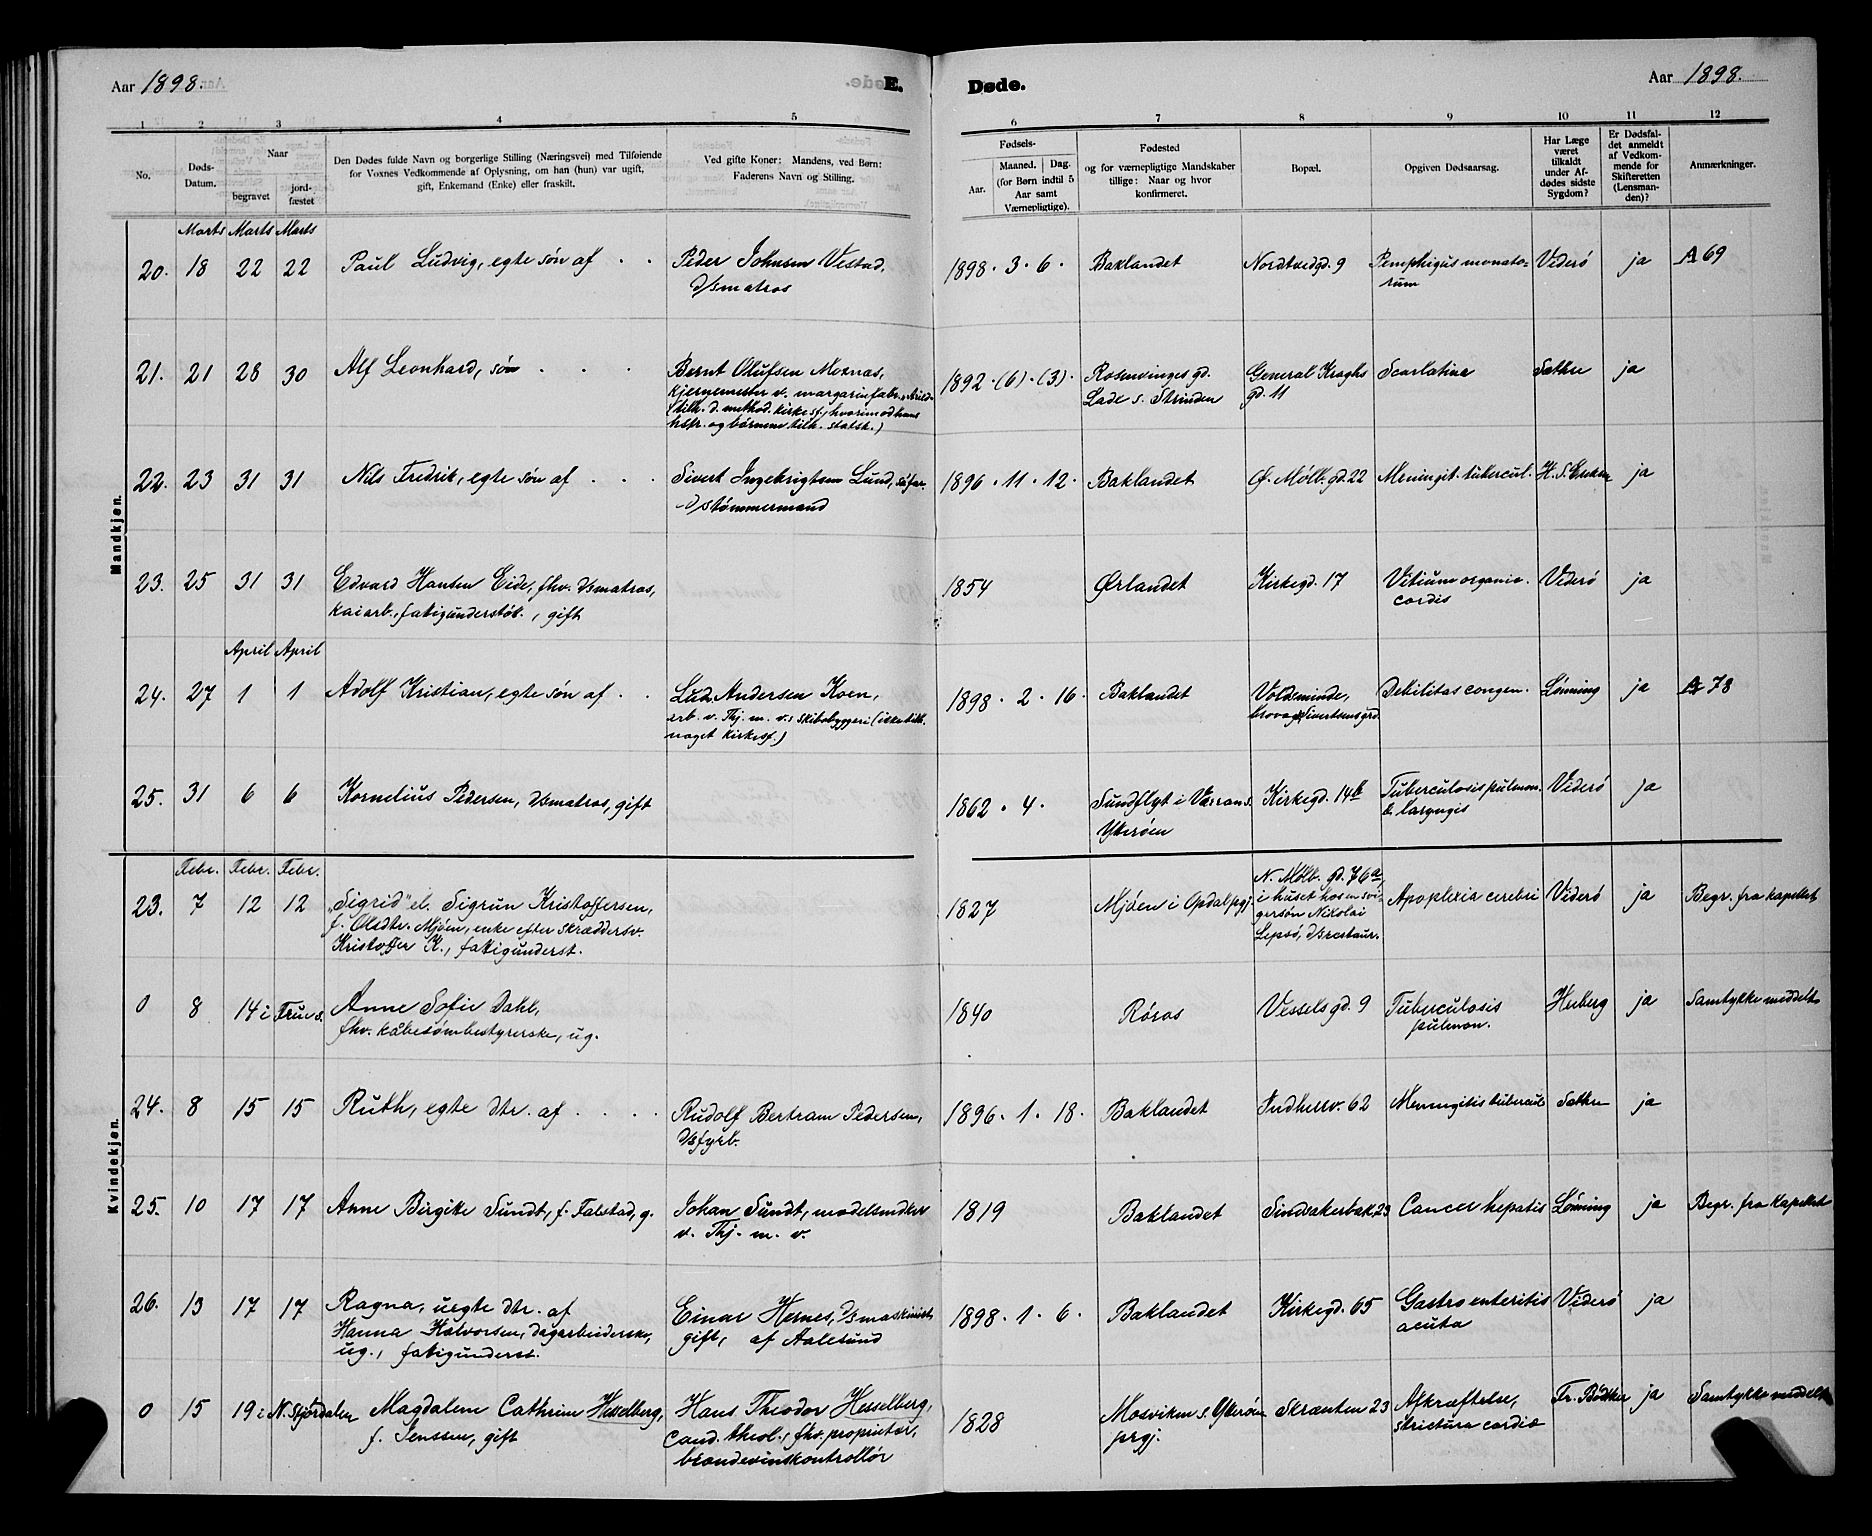 Aar 1898.
E. Døde.
Aar 1898.
1 2 3 4 5 6 7 8 9 10 11 12
No.
Døds-
Datum.
Naar
begravet
jord-
fæstet
Den Dødes fulde Navn og borgerlige Stilling (Næringsvei) med Tilføiende
for Voxnes Vedkommende af Oplysning, om han (hun) var ugift,
gift, Enkemand (Enke) eller fraskilt.
Ved gifte Koner: Mandens, ved Børn:
Faderens Navn og Stilling.
Fødsels-
Aar.
Maaned. Dag.
(for Børn indtil 5
Aar samt
Værnepligtige).
Fødested
og for værnepligtige Mandskaber
tillige: Naar og hvor
konfirmeret.
Bopæl.
Opgiven Dødsaarsag.
Har Læge
været
tilkaldt
under Af-
dødes sidste
Sygdom?
Er Dødsfal-
det anmeldt
af Vedkom-
mende for
Skifteretten
(Lensman-
den)?
Anmærkninger.
Mandkjøn.
Marts Marts Marts
20. 18 22 22 Paul Ludvig, egte søn af . .
Peder Johnsen Vestad,
d/smatros
1898 . 3 . 6 . Baklandet
Nordtvedgd. 9
Pemphigus monato-
rum
Viderö ja A 69
21. 21 28 30 Alf Leonhard, søn . . .
Bernt Olufsen Moxnas,
kjernemester v. margarinfabr.
(tilh. d. method. kirkesf., hvorimod hans
hstr. og børnene tilh. statsk.)
1892 . (6) . (3) .
Rosenvinges gd.
Lade s. Strinden
General Kraghs
gd. 11
Scarlatina Sæther ja
22. 23 31 31 Nils Fredrik, egte søn af . . .
Sivert Ingebrigtsen Lund,
d/stømmermand
1896 . 11 . 12 . Baklandet Ø. Mølb. gd. 22 Meningit. tubercul. ja
23. 25 31 31 Edvard Hansen Eide, fhv. d/smatros,
kaiarb., fatigunderstøt., gift
1854 Ørlandet Kirkegd. 17
Vitium organic.
cordis
Viderö ja
April April
24. 27 1 1 Adolf Kristian, egte søn af . .
Lud. Andersen Koen,
arb. v. Thj. m. v.s skibsbyggeri (ikke tilh.
noget kirkesf.)
1898 . 2 . 16 . Baklandet
Voldsminde,
Debilitas congen. Lönning ja A 78
25. 31 6 6 Kornelius Pedersen, d/smatros, gift
1862 . 4 .
Sundflyt i Værran s.
Ytterøen
Kirkegd. 14b
Tuberculosis pulmon.
& laryngis
Viderö ja
Kvindekjøn.
Febr. Febr. Febr.
23. 7 12 12 "Sigrid" el. Sigrun Kristoffersen,
f. Olsdtr. Mjøen, enke efter skræddersv.
Kristoffer K., fatigunderst.
1827 Mjøen i Opdal pgj.
N. Mølb. gd. 76a,
i huset hos en svi-
gersøn Nikolai
Lepsö, d/srestaur.
Apoplexia cerebri Viderö ja Begr. fra kapellet
0 8 14 i Frue s. Anne Sofie Dahl,
fhv. kåbesømbestyrerske, ug.
1840 Røros Vessels gd. 9
Tuberculosis
pulmon.
Herberg ja Samtykke meddelt
24. 8 15 15 Ruth, egte dtr. af . . . .
Rudolf Bertram Pedersen,
d/sfyrb.
1896 . 1 . 18 . Baklandet Indherrv. 62 Meningitis tubercul. Sæther ja
25. 10 17 17 Anne Birgitte Sundt, f. Falstad, g.
Johan Sundt, modelsnedker
v. Thj. m. v.
1819 Baklandet Sindsakerbak. 23 Cancer hepatis Lönning ja Begr. fra kapellet
26. 13 17 17 Ragna, uegte dtr. af
Hanna Halvorsen, dagarbeiderske,
ug., fatigunderst.
Einar Hernes, d/smaskinist,
gift, af Aalesund
1898 . 1 . 6 . Baklandet Kirkegd. 65
Gastroenteritis
acuta
Viderö ja
0 15 19 i N. Stjørdalen Magdalene Cathrine Hesselberg,
f. Jenssen, gift
Hans Theodor Hesselberg,
Cand. theol., fhv. proprietær,
brændevinskontrollør
1828
Mosviken s. Ytterøen
prgj.
Skrænten 23
Afkræftelse,
strictura cardiæ
Fr. Bødtker ja Samtykke meddelt